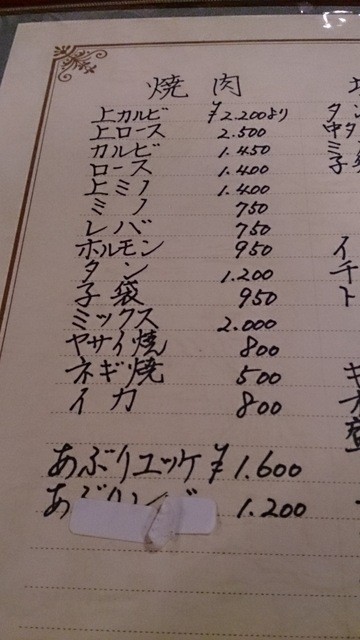 焼肉
上カルビ ¥2.200より
上ロース 2.500
カルビ 1.450
ロース 1.400
上ミノ 1.400
ミノ 750
レバ 750
ホルモン 950
タン 1.200
子袋 950
ミックス 2.000
ヤサイ焼 800
ネギ焼 500
イカ 800
あぶりユッケ ¥1.600
1.200
タン
中タ
ミ
子袋
イ
チ
ト
キ